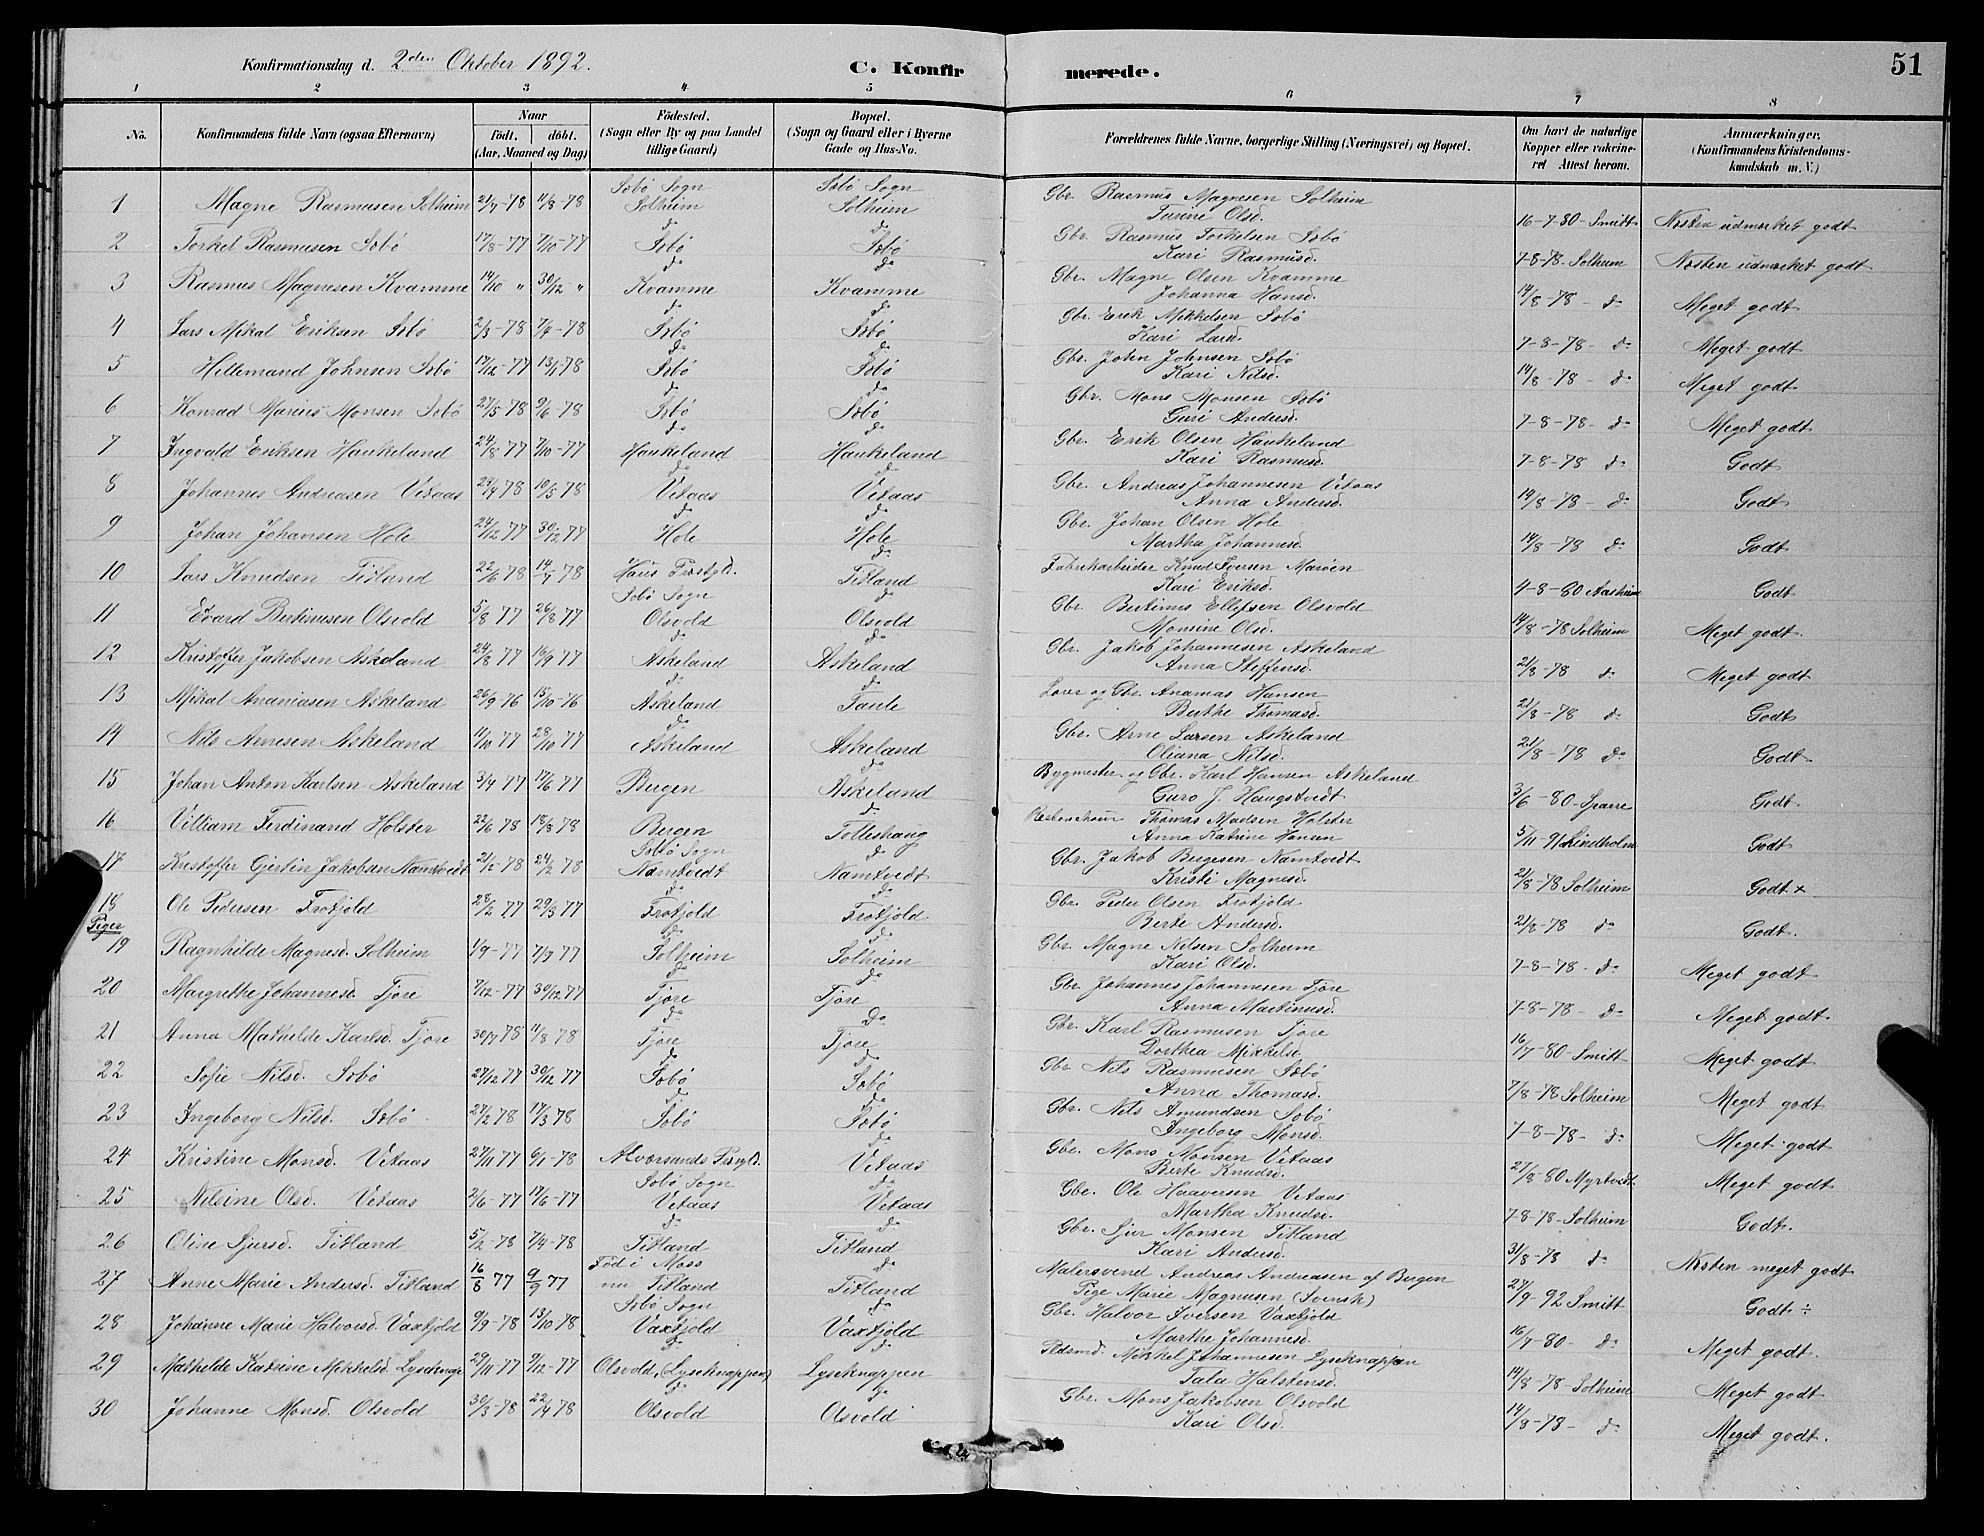 Konfirmationsdag d. 2den Oktober 1892. C. Konfirmerede. 51
1 2 3 4 5 6 7 8
No. Konfirmandens fulde Navn (ogsaa Efternavn) Naar født. døbt. (Aar, Maaned og Dag) Fødested. (Sogn eller By og paa Landet tillige Gaard) Bopæl. (Sogn og Gaard eller i Byerne Gade og Hus-No. Forældrenes fulde Navne, borgerlige Stilling (Næringsvei) og Bopæl. Om havt de naturlige Kopper eller vakcineret Attest herom. Anmærkninger. (Konfirmandens Kristendomskundskab m. V.)
1 Magne Rasmusen Solheim 21/7-78 11/8-78 Sæbø Sogn Solheim Sæbø Sogn Solheim Gbr. Rasmus Magnesen Solheim Turine Olsd. 16-7-80-Smitt Næsten udmærket godt
2 Torkel Rasmusen Sæbø 17/8-77 7/10-77 do Sæbø do Sæbø Gbr. Rasmus Torkelsen Sæbø Kari Rasmusd. 7-8-78. Solheim Næsten udmærket godt
3 Rasmus Magnesen Kvamme 14/10 " 30/12 " do Kvamme do Kvamme Gbr. Magne Olsen Kvamme Johanna Hansd. 14/8-78 - do Meget godt
4 Lars Mikal Eriksen Sæbø 2/3-78 7/4-78 do Sæbø do Sæbø Gbr. Erik Mikkelsen Sæbø Kari Larsd. 7-8-78- do Meget godt
5 Hellemand Johnsen Sæbø 17/12-77 13/1-78 do Sæbø do Sæbø Gbr. John Johnsen Sæbø Kari Nilsd. 14/8-78 - do Meget godt
6 Konrad Marius Monsen Sæbø 27/5-78 9/6-78 do Sæbø do Sæbø Gbr. Mons Monsen Sæbø Guri Andersd. 7-8-78- do Meget godt
7 Ingvald Eriksen Haukeland 24/8 77 7/10-77 do Haukeland do Haukeland Gbr. Erik Olsen Haukeland Kari Rasmusd. 7-8-78 do Godt
8 Johannes Andreasen Vetaas 24/4 78 19/5 78 do Vetaas do Vetaas Gbr. Andreas Johannesen Vetaas Anna Andersd. 14/8-78 - do Godt
9 Johan Johansen Hole 24/12 77 30/12 77 do Hole do Hole Gbr. Johan Olsen Hole Martha Johannesd. 14/8-78 do Godt
10 Lars Knudsen Titland 22/6 78 14/7 78 Haus Præstgld. do Titland Fabrikarbeider Knud Iversen Marøen Kari Eriksd. 4-8-80 Aasheim Godt
11 Edvard Bertinusen Olsvold 5/8 77 26/8 77 Sæbø Sogn Olsvold do Olsvold Gbr. Bertinus Ellefsen Olsvold Monsine Olsd. 14/8-78 Solheim Meget godt.
12 Kristoffer Jakobsen Askeland 24/8 77 16/9 77 do Askeland do Askeland Gbr. Jakob Johannesen Askeland Anna Steffensd. 21/8-78 do Meget godt
13 Mikal Ananiasen Askeland 26/9 76 15/10-76 do Askeland do Taule Gbr. Ananias Hansen Berthe Thomasd. 21/8-78 do Godt
14 Nils Arnesen Askeland 11/10 77 28/10 77 do Askeland Askeland Gbr. Arne Larsen Askeland Oliana Nilsd. 21/8-78 do Godt
15 Johan Anton Karlsen Askeland 3/4 77 17/6 77 Bergen do Askeland Bygmester og Gbr. Karl Hansen Askeland Guro J. Haugstvedt 3/6-80-Sparre Godt
16 Villiam Ferdinand Holster 22/6 78 18/8 78 Bergen do Totleshaug Thomas Madsen Holster Anna Katrine Hansen 5/11-91 Lindholm Godt
17 Kristoffer Gjertin Jakobsen Namtvedt 21/2-78 24/2 78 Sæbø Sogn Namtvedt do Namtvedt Gbr. Jakob Bergesen Namtvedt Kristi Magnesd. 21/8-78 Solheim Godt x
18 Ole Pedersen Frotjold 28/2 77 29/3 77 do Frotjold do Frotjold Gbr. Peder Olsen Frotjold Berte Andersd. 21/8-78 do Godt.
Piger
19 Ragnhilde Magnesd. Solheim 1/9-77 7/9 77 do Solheim do Solheim Gbr. Magne Nilsen Solheim Kari Olsd. 7-8-78- do Meget godt
20 Margrethe Johannesd. Tjore 7/12-77 30/12 77 do Tjore do Tjore Gbr. Johannes Johannesen Tjore Anna Martinusd. 7-8-78- do Meget godt
21 Anna Mathilde Karlsd. Tjore 30/7 78 11/8 78 do Tjore Do Tjore Gbr. Karl Rasmusen Tjore Dorthea Mikkelsd. 16/7-80 Smitt Meget godt
22 Sofie Nilsd. Sæbø 27/12 77 30/12 77 do Sæbø do Sæbø Gbr. Nils Rasmusen Sæbø Anna Thomasd. 7/8-78 Solheim Meget godt
23 Ingeborg Nilsd. Sæbø 27/2 78 17/3 78 do Sæbø do Sæbø Gbr. Nils Amundsen Sæbø Ingeborg Monsd. 7-8-78- do Meget godt
24 Kristine Monsd. Vetaas 27/11 77 6/1-78 Alversunds Prstgld. do Vetaas Gbr. Mons Monsen Vetaas Berte Knudsd. 27/8-80 Myrtvedt Meget godt
25 Nilsine Olsd. Vetaas 2/6-77 17/6-77 Sæbø Sogn Vetaas do Vetaas Gbr. Ole Haaversen Vetaas Martha Knudsd. 7-8-78-Solheim Godt.
26 Oline Sjursd. Titland 5/2-78 7/4-78 do Titland do Titland Gbr. Sjur Monsen Titland Kari Andersd. 31/8-78 do Næsten meget godt
27 Anne Marie Andersd. Titland 16/8 77 9/9 77 Fød i Moss nu Titland Titland Malersvend Andreas Andreasen af Bergen Pige Marie Magnusen (Svensk) 27/9-92 Smitt Godt ÷
28 Johanne Marie Halvorsd. Vaxtjold 9/9-78 13/10-78 Sæbø Sogn Vaxtjold do Vaxtjold Gbr. Halvor Iversen Vaxtjold Marthe Johannesd. 16/7-80- do Meget godt.
29 Mathilde Katrine Mikkelsd. Lyseknap 29/11-77 9/12-77 do Olsvold, (Lyseknappen) do Lyseknappen Pldsmd. Mikkel Johannesen Lyseknappen Tala Halstensd. 14/8-78-Solheim Meget godt
30 Johanne Monsd. Olsvold 30/3-78 22/4 78 do Olsvold do Olsvold Gbr. Mons Jakobsen Olsvold Kari Olsd. 14/8-78- do Meget godt.